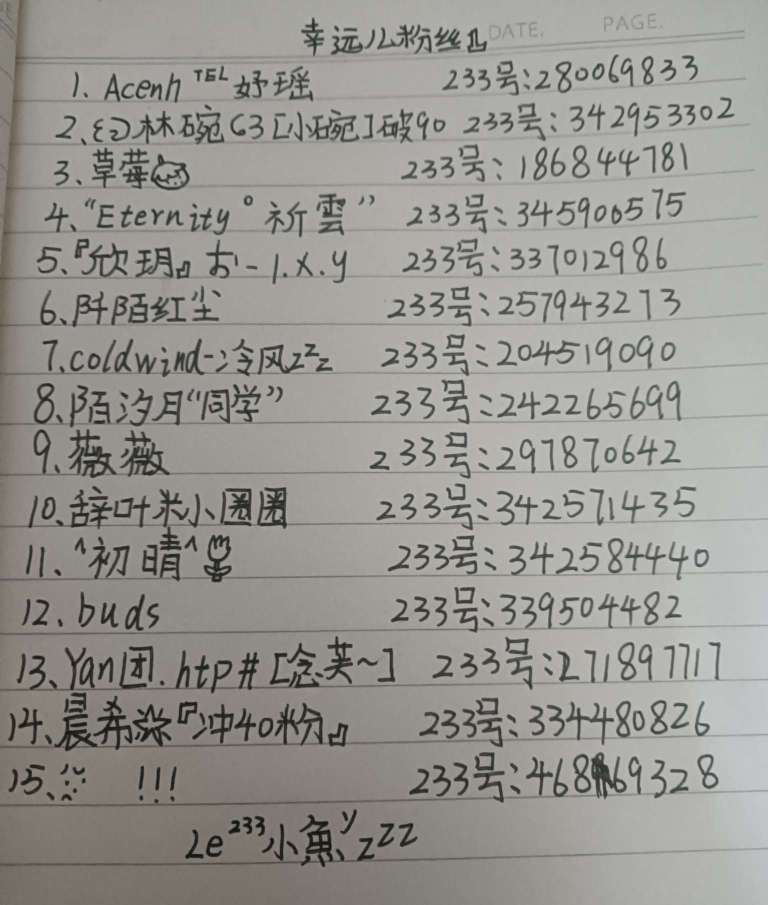 DATE. PAGE.
幸远儿粉丝
1. Acenh TEL 妤瑶 233号:280069833
2、林碗G3[小碗]破90 233号:342953302
3、草莓 233号:186844781
4、“Eternity°祈雲” 233号:345906575
5、『欣玥』お-1.x.y 233号:337012986
6、阡陌红尘 233号:257943273
7.coldwind-冷风zzz 233号:204519090
8、陌汐月“同学” 233号:242265699
9、薇薇 233号:297870642
10、辞叶米小圈圈 233号:342571435
11、^初晴^ 233号:342584440
12、buds 233号:339504482
13、Yan团.htp#[念芙~] 233号:271897717
14、晨希『冲40粉』 233号:334480826
15、 !!! 233号:
Le233小魚 zzz